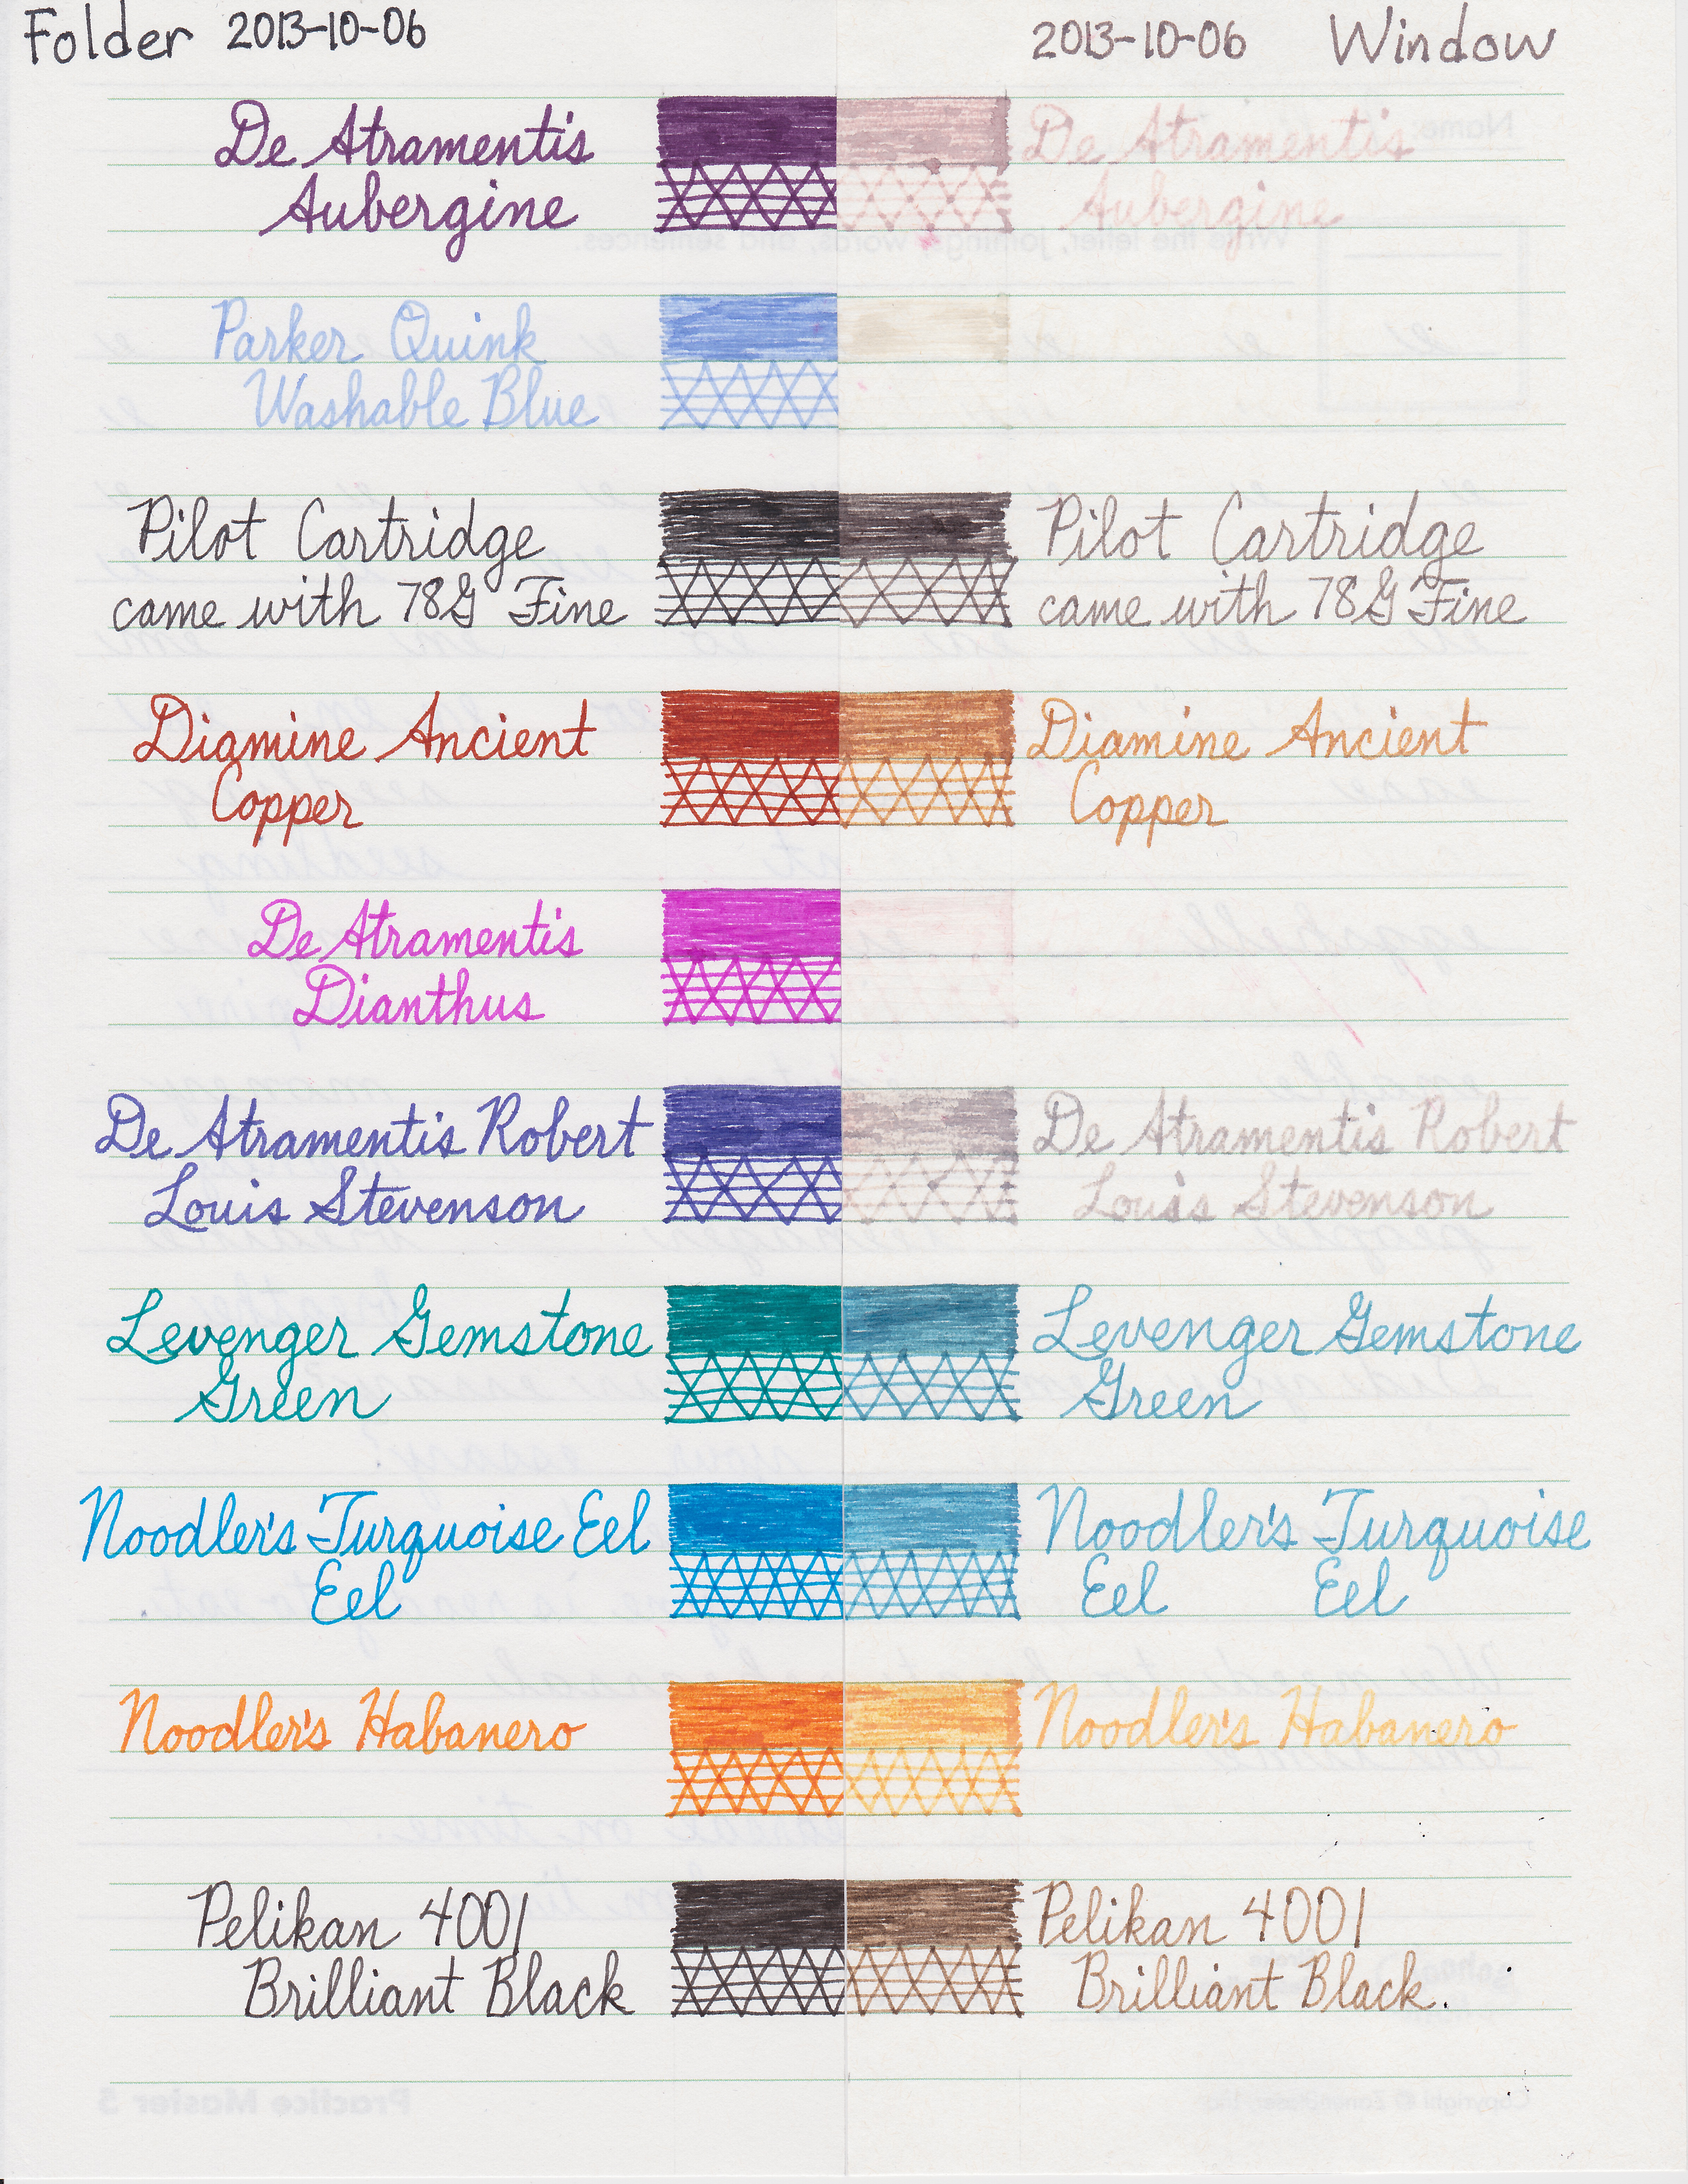 Folder 2013-10-06 2013-10-06 Window
De Atramentis De Atramentis
Aubergine Aubergine
Name:
Write the letter, joinings, words, and sentences.
Parker Quink
Washable Blue
Pilot Cartridge Pilot Cartridge
came with 78G Fine came with 78G Fine
Diamine Ancient Diamine Ancient
Copper Copper
seedling
De Atramentis
Dianthus
De Atramentis Robert De Atramentis Robert
Louis Stevenson Louis Stevenson
Levenger Gemstone Levenger Gemstone
Green Green
Noodler's Turquoise Eel Noodler's Turquoise
Eel Eel Eel
Noodler's Habanero Noodler's Habanero
on time.
Pelikan 4001 Pelikan 4001
Brilliant Black Brilliant Black.
Practice Master 5